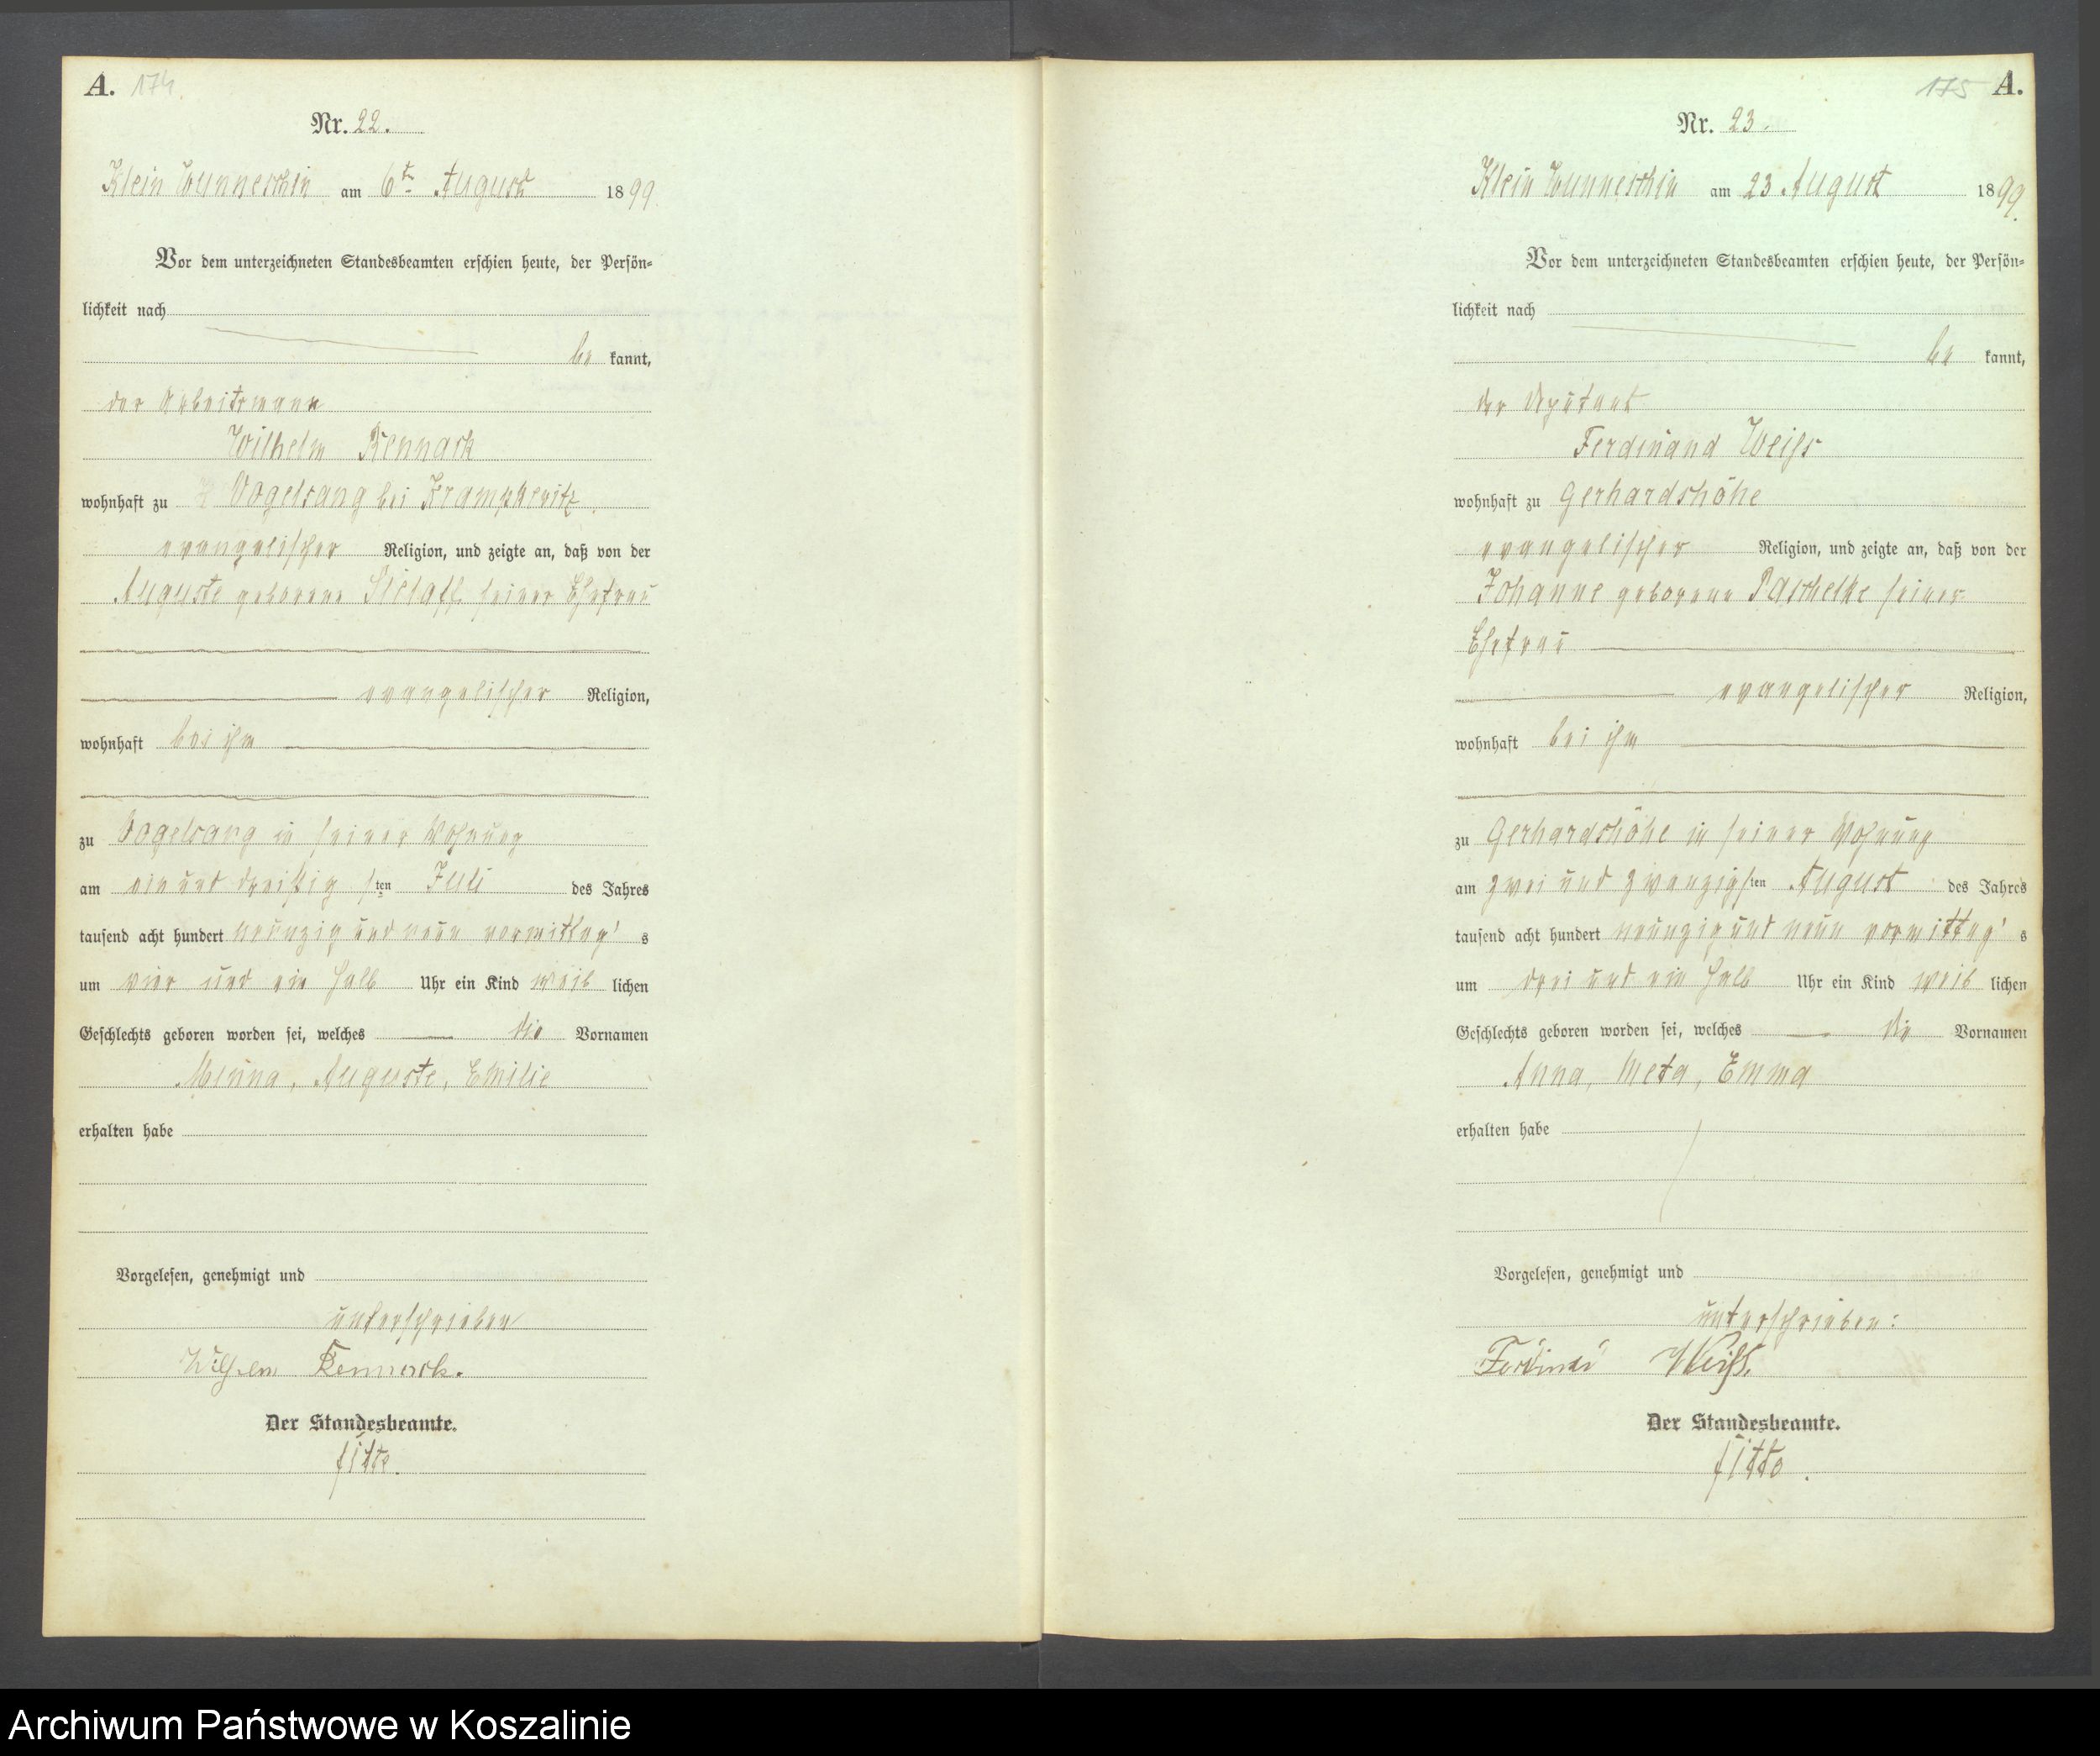 A. 174
Nr. 22.
Klein Wunneschin am 6ten August 1899
Vor dem unterzeichneten Standesbeamten erschien heute, der Persön-
lichkeit nach
be kannt,
der Arbeitsmann
Wilhelm Rennack
wohnhaft zu Vogelsang bei Krampkewitz
evangelischer Religion, und zeigte an, daß von der
Auguste geborene seiner Ehefrau
evangelischer Religion,
wohnhaft bei ihm
zu Vogelsang in seiner Wohnung
am ein und dreißig sten Juli des Jahres
tausend acht hundert neunzig und neun vormittag s
um vier und ein halb Uhr ein Kind weib lichen
Geschlechts geboren worden sei, welches die Vornamen
Minna, Auguste, Emilie
erhalten habe
Vorgelesen, genehmigt und
unterschrieben
Wilhelm Rennack.
Der Standesbeamte.
175 A.
Nr. 23.
Klein Wunneschin am 23 August 1899.
Vor dem unterzeichneten Standesbeamten erschien heute, der Persön-
lichkeit nach
be kannt,
der Deputant
Ferdinand Weiß
wohnhaft zu Gerhardshöhe
evangelischer Religion, und zeigte an, daß von der
Johanne geborene Paschelke seiner
Ehefrau
evangelischer Religion,
wohnhaft bei ihm
zu Gerhardshöhe in seiner Wohnung
am zwei und zwanzigsten August des Jahres
tausend acht hundert neunzig und neun vormittag s
um drei und ein halb Uhr ein Kind weib lichen
Geschlechts geboren worden sei, welches die Vornamen
Anna, Meta, Emma
erhalten habe
Vorgelesen, genehmigt und
unterschrieben:
Weiß.
Der Standesbeamte.
Archiwum Państwowe w Koszalinie